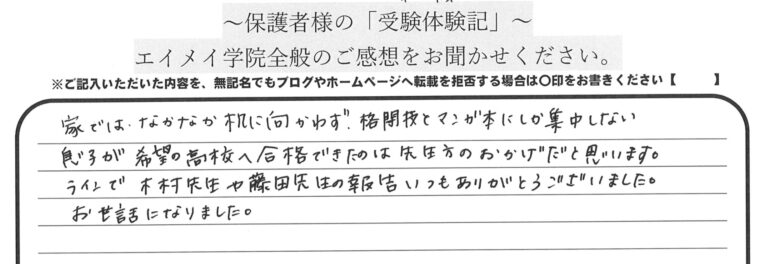 ～保護者様の「受験体験記」～
エイメイ学院全般のご感想をお聞かせください。
※ご記入いただいた内容を、無記名でもブログやホームページへ転載を拒否する場合は〇印をお書きください【　　】
家では、なかなか机に向かわず、格闘技とマンガ本にしか集中しない
息子が希望の高校へ合格できたのは先生方のおかげだと思います。
ラインで木村先生や藤田先生の報告いつもありがとうございました。
お世話になりました。